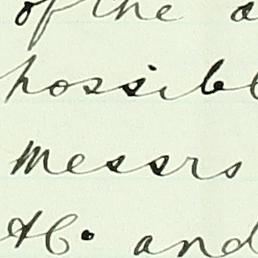 of the a
possibl
Messrs
H6. and